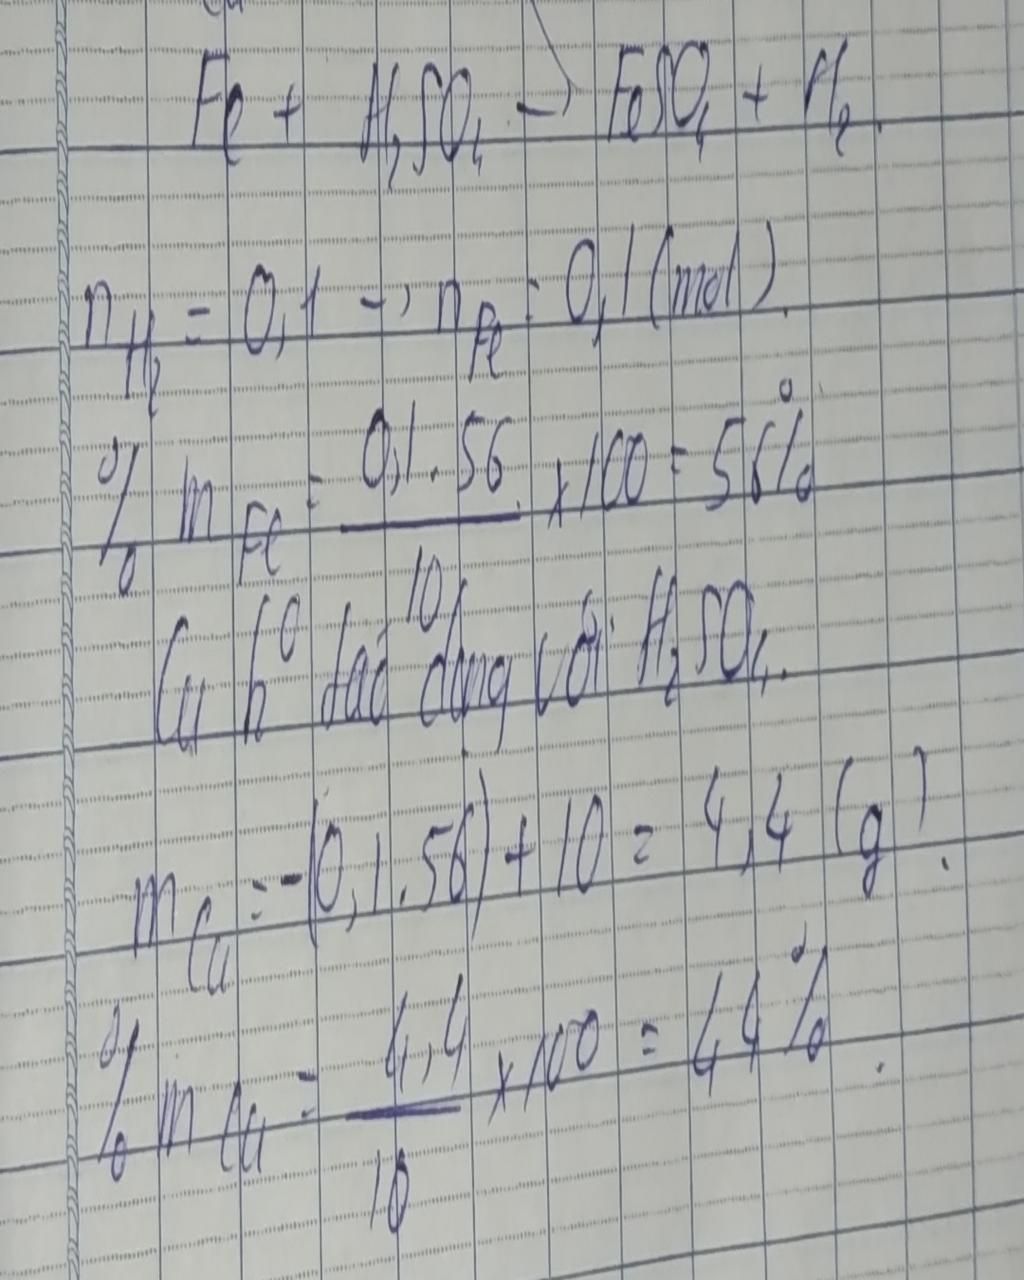 Fe + H₂SO₄ → FeSO₄ + H₂.
n_H₂ = 0,1 → n_Fe = 0,1 (mol).
% m_Fe = (0,1.56)/10 x100 = 56%
Cu k⁰ tác dụng với H₂SO₄.
m_Cu = -(0,1.56) + 10 = 4,4 (g).
% m_Cu = 4,4/10 x100 = 44%.